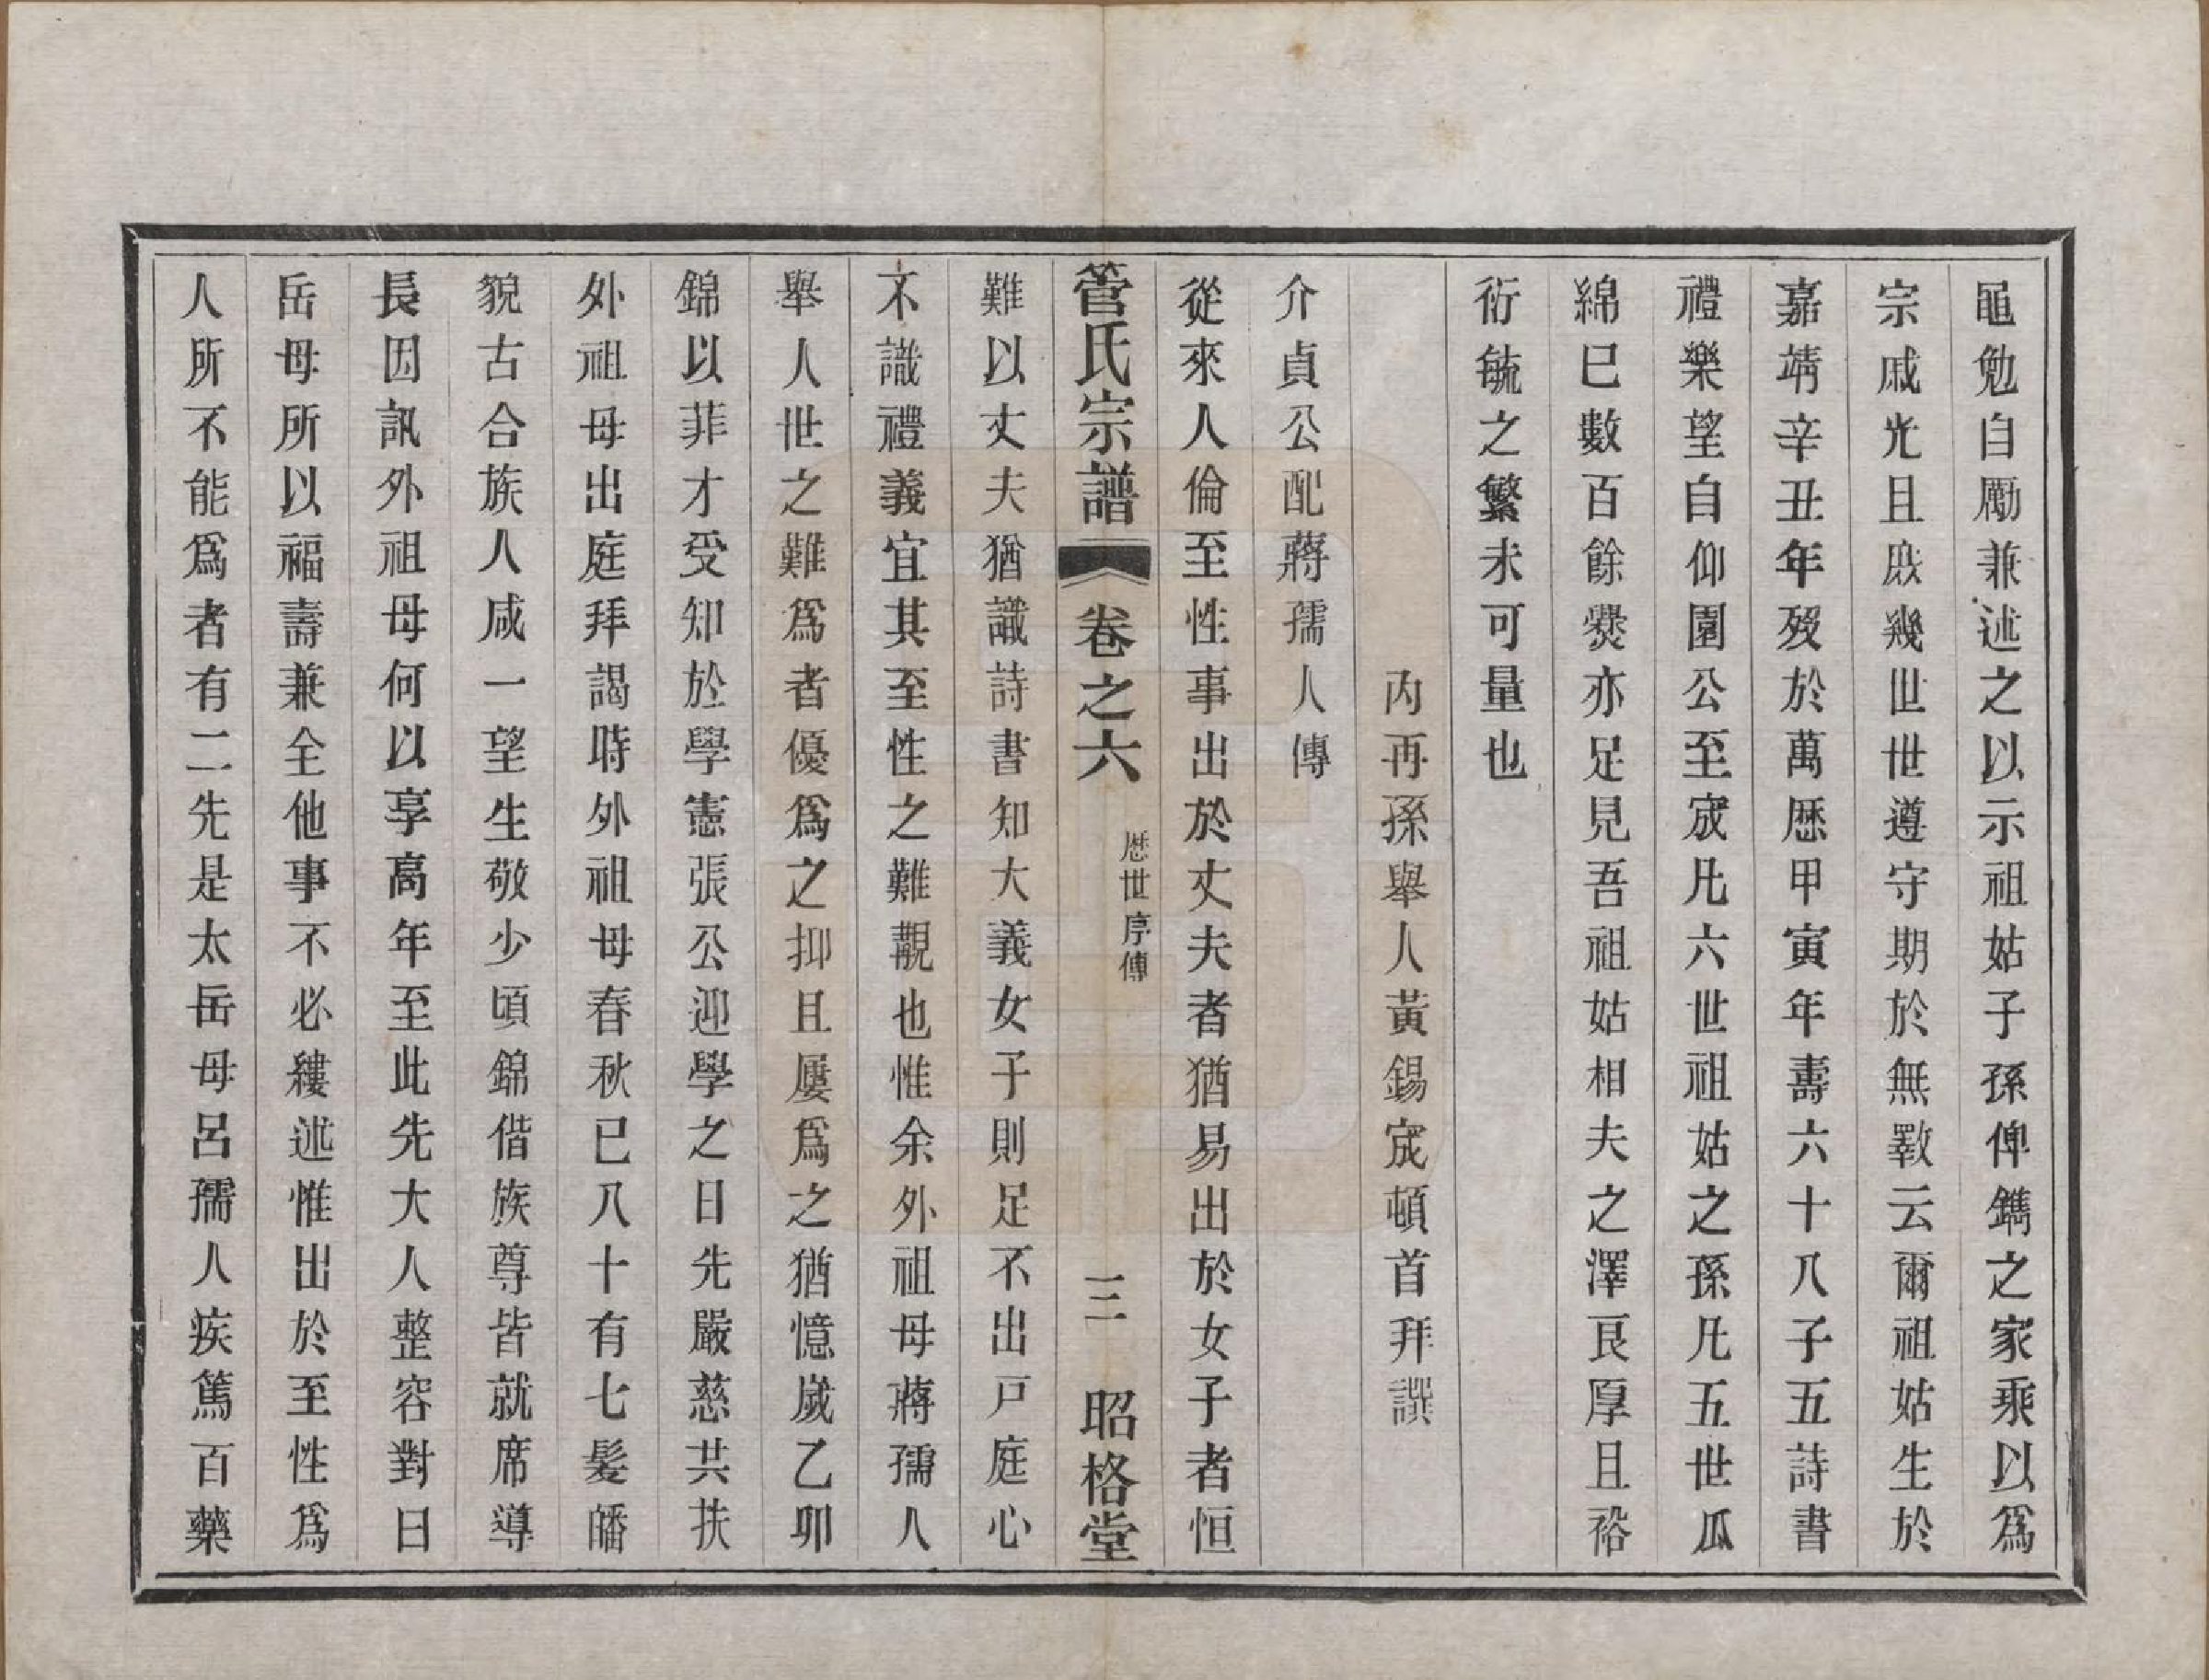 黽勉自勵兼述之以示祖姑子孫俾鐫之家乘以爲
宗戚光且庶幾世世遵守期於無斁云爾祖姑生於
嘉靖辛丑年歿於萬厯甲寅年壽六十八子五詩書
禮樂望自仰園公至宬凡六世祖姑之孫凡五世瓜
綿已數百餘爨亦足見吾祖姑相夫之澤良厚且裕
衍毓之繁未可量也
內再孫舉人黃錫宬頓首拜譔
介貞公配蔣孺人傳
從來人倫至性事出於丈夫者猶易出於女子者恒
管氏宗譜 卷之六 厯世序傳 三 昭格堂
難以丈夫猶識詩書知大義女子則足不出戸庭心
不識禮義宜其至性之難觀也惟余外祖母蔣孺人
舉人世之難爲者優爲之抑且屢爲之猶憶歲乙卯
錦以菲才受知於學憲張公迎學之日先嚴慈共扶
外祖母出庭拜謁時外祖母春秋已八十有七髮皤
貌古合族人咸一望生敬少頃錦偕族尊皆就席導
長因訊外祖母何以享高年至此先大人整容對曰
岳母所以福壽兼全他事不必縷述惟出於至性爲
人所不能爲者有二先是太岳母呂孺人疾篤百藥